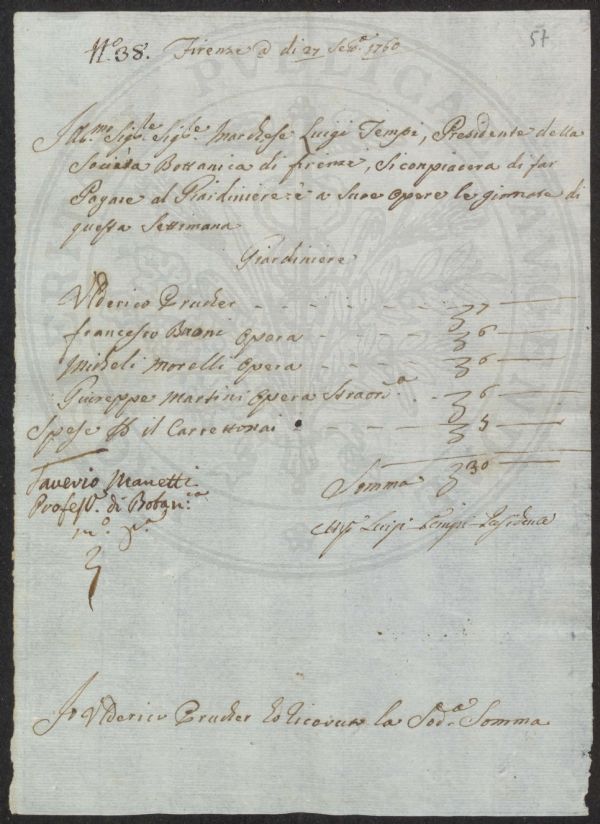 57
N.º 38. Firenze a di 27 Seb.e 1760
Ill.mo Sig.le Sig.le Marchese Luigi Tempi, Presidente della
Società Bottanica di firenze, Si conpiacera di far
Pagare al Giardiniere è a Sue Opere le giornate di
questa Settimana
Giardiniere
Vlderico Prucher - - - - - - 7
francesco Buoni Opera - - - - 6
Micheli Morelli Opera - - - - 6
Giuseppe Martini Opera Straord.a - - 6
Spese il Carrettonai - - - - 5
Saverio Manetti
Somma 30
Profess.e di Botan.ca
m.o p.a
Luigi Tempi Presidente
Io Vlderico Prucher ho ricevuto la Sod.a Somma